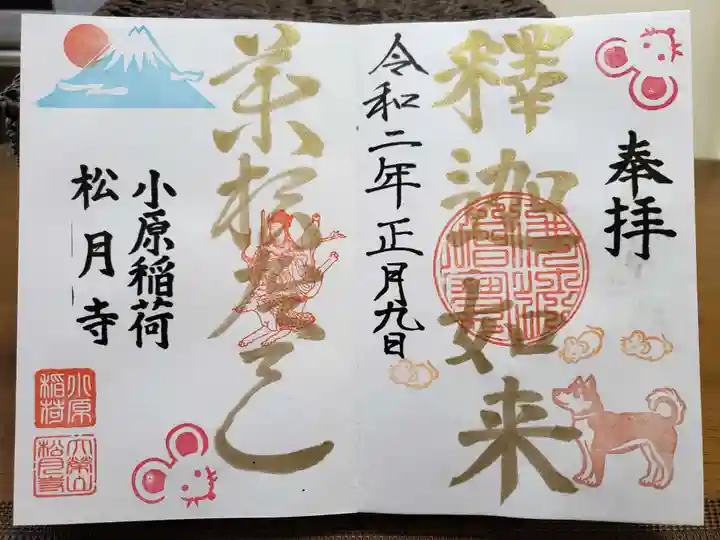 奉拝
釋迦如来
令和二年正月九日
荼枳
小原稲荷
松月寺
小原
稲荷
松月寺